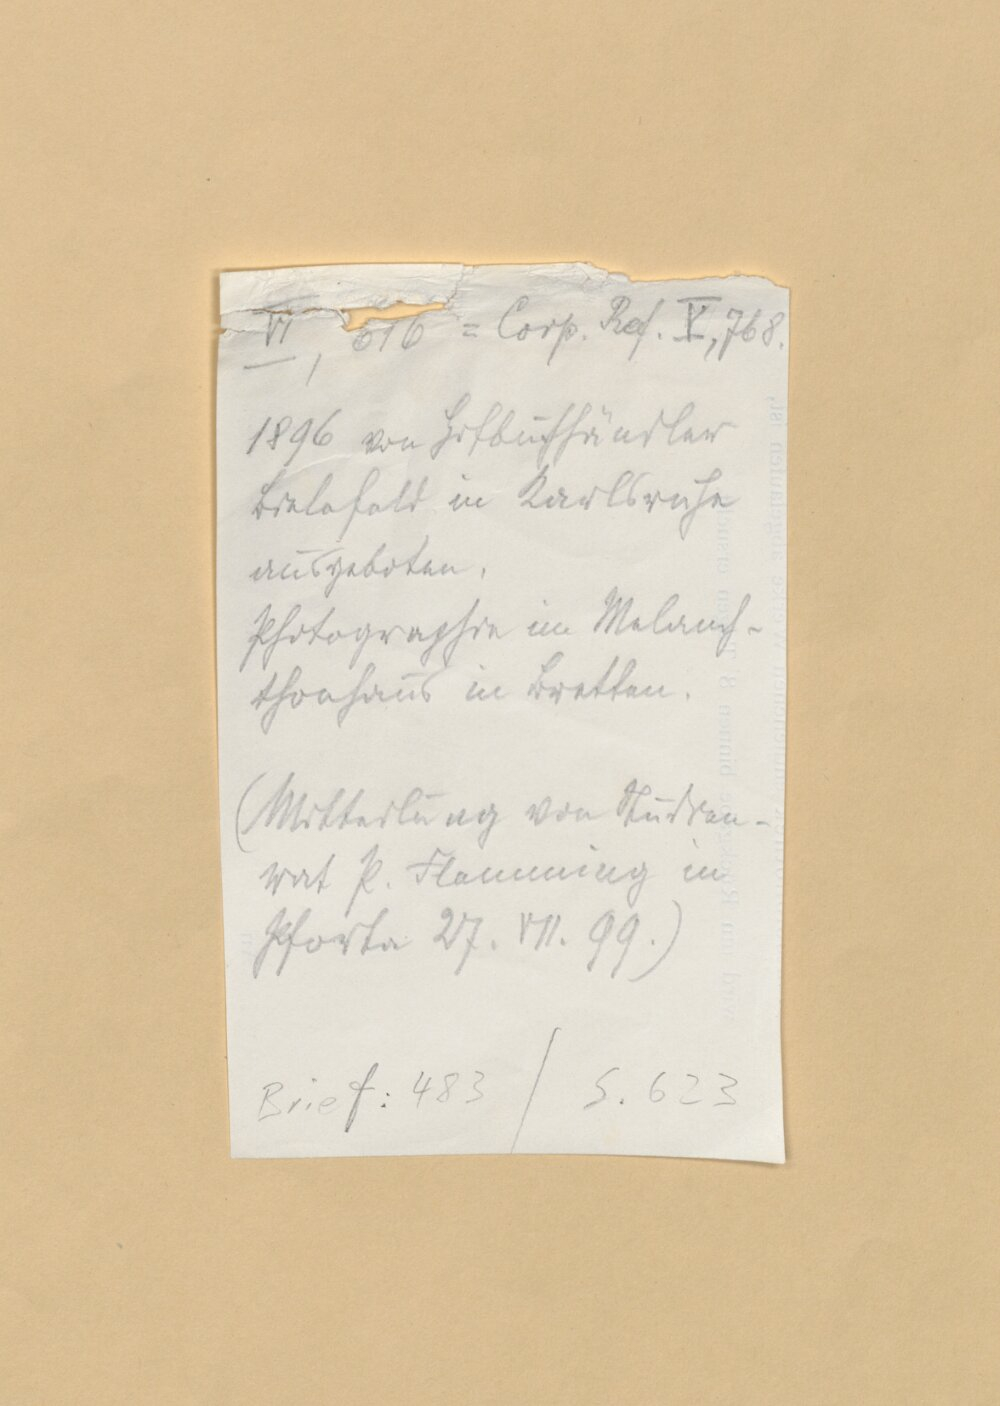 VI, 616 = Corp. Ref. V, 768.
1896 von Hofbuchhändler
Bielefeld in Karlsruhe
ausgeboten.
Photographie im Melanch-
thonhaus in Bretten.
(Mitteilung von Studien-
rat P. Flemming in
Pforta 27. VII. 99.)
Brief: 483 / S. 623